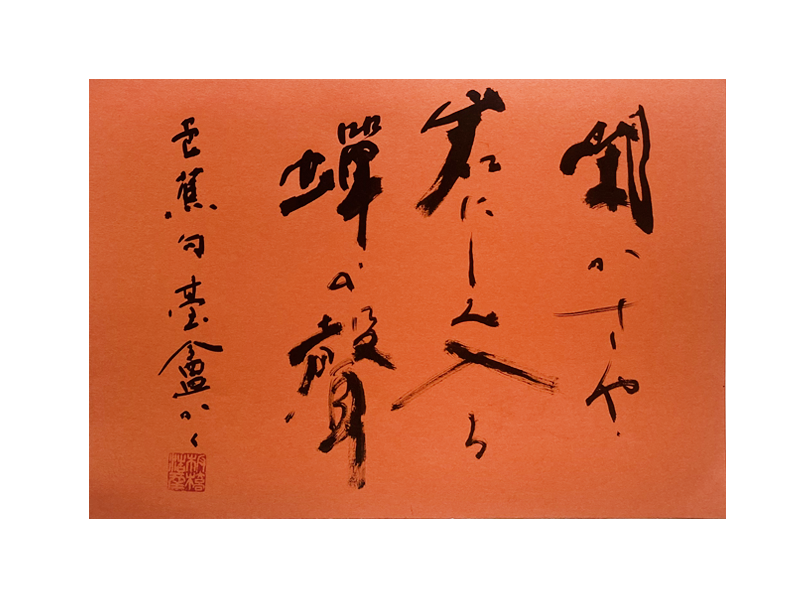 閑かさや
岩にしみ入る
蟬の聲
芭蕉句臺盦かく